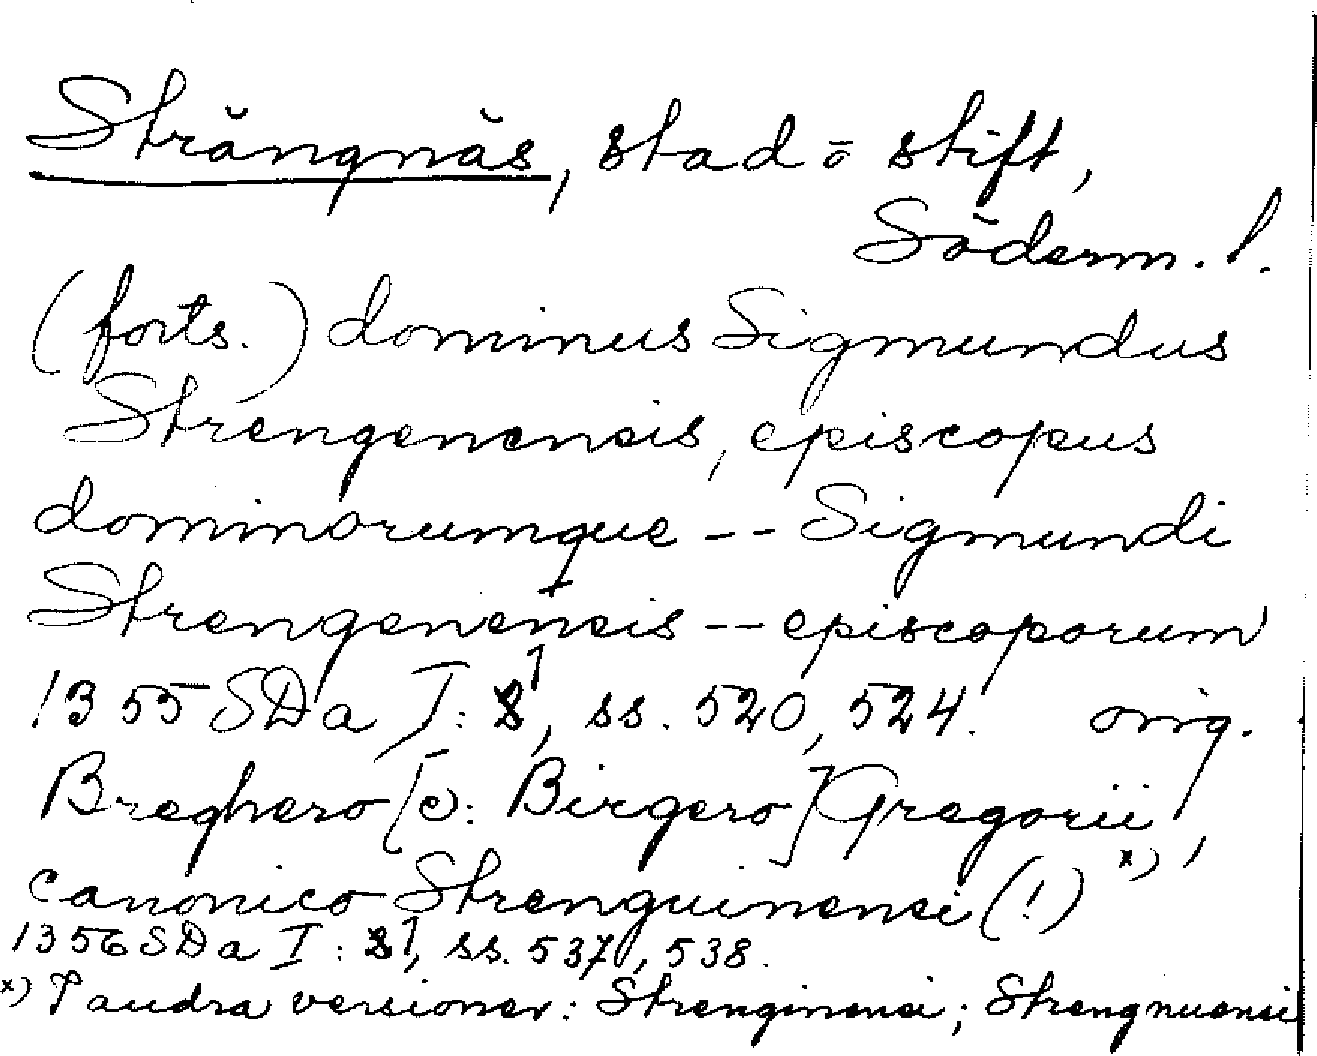 Strängnäs, stad o stift,
Söderm. l.
(forts.) dominus Sigmundus
Strengenensis, episcopus
dominorumque -- Sigmundi
Strengenensis -- episcoporum
1355 SDa I: 1, ss. 520, 524. orig.
Breghero [ɔ: Birgero] Gregorii,
canonico Strenguinensi (!) x),
1356 SDa I: 1, ss. 537, 538.
x) I andra versioner: Strenginensi; Strengnuensi